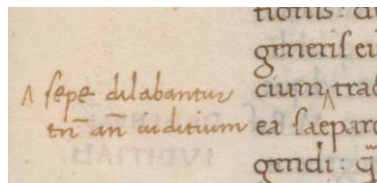 tionis: d
generis ei
cium, trad
ea saepar
gendi: q̄
^ sepe dilabantur
tn̄ an̄ iuditium